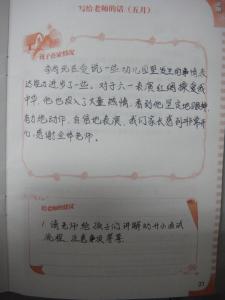 写给老师的话(五月)
孩子在家情况
爱说一些幼儿园里发生的事情,表
达能力进步了一些。对于六一表演红绸操爱我
中华,他也投入了大量热情,看到他坚定地跟
动作,自信地表演,我们家长感到非常开
心,感谢全体老师。
给老师的建议
1. 请老师给孩子们讲解幼升小面试
流程,注意事项等等。
21